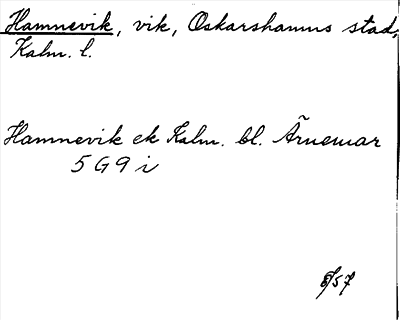 Hamnevik, vik, Oskarshamns stad,
Kalm. l.
Hamnevik ek Kalm. bl. Ärnemar
5 G 9 i
8/57